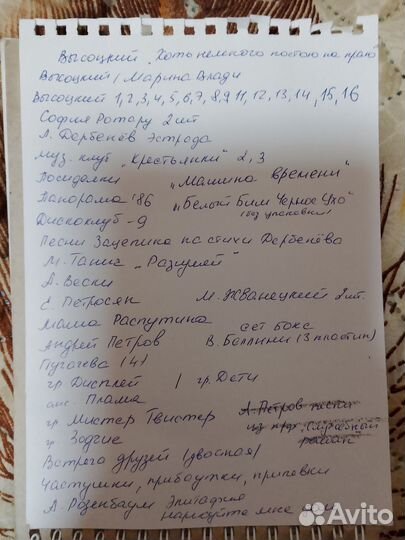 Высоцкий „Хоть немного постою на краю"
Высоцкий / Марина Влади
Высоцкий 1, 2, 3, 4, 5, 6, 7, 8, 9, 11, 12, 13, 14, 15, 16
София Ротару 2 шт
Л. Дербенёв Эстрада
Муз. клуб „Крестьянки" 2, 3
Посиделки „Машина времени"
Панорама '86 „Белый Бим Черное Ухо"
Дискоклуб - 9 (без упаковки)
Песни Зацепина на стихи Дербенёва
М. Танич „Разуней"
А. Вески
Е. Петросян М. Жванецкий 2 шт.
Маша Распутина
Андрей Петров сет бокс
В. Беллини (3 пластин)
Пугачева (4)
гр. Дисплей / гр. Дети
анс. Пламя
гр Мистер Твистер А. Петров песни
гр. Зодчие из к/ф „Служебный роман"
Встреча друзей (двойная)
Частушки, прибаутки, припевки
А. Розенбаум Эпитафия
нарисуйте мне дом
Avito